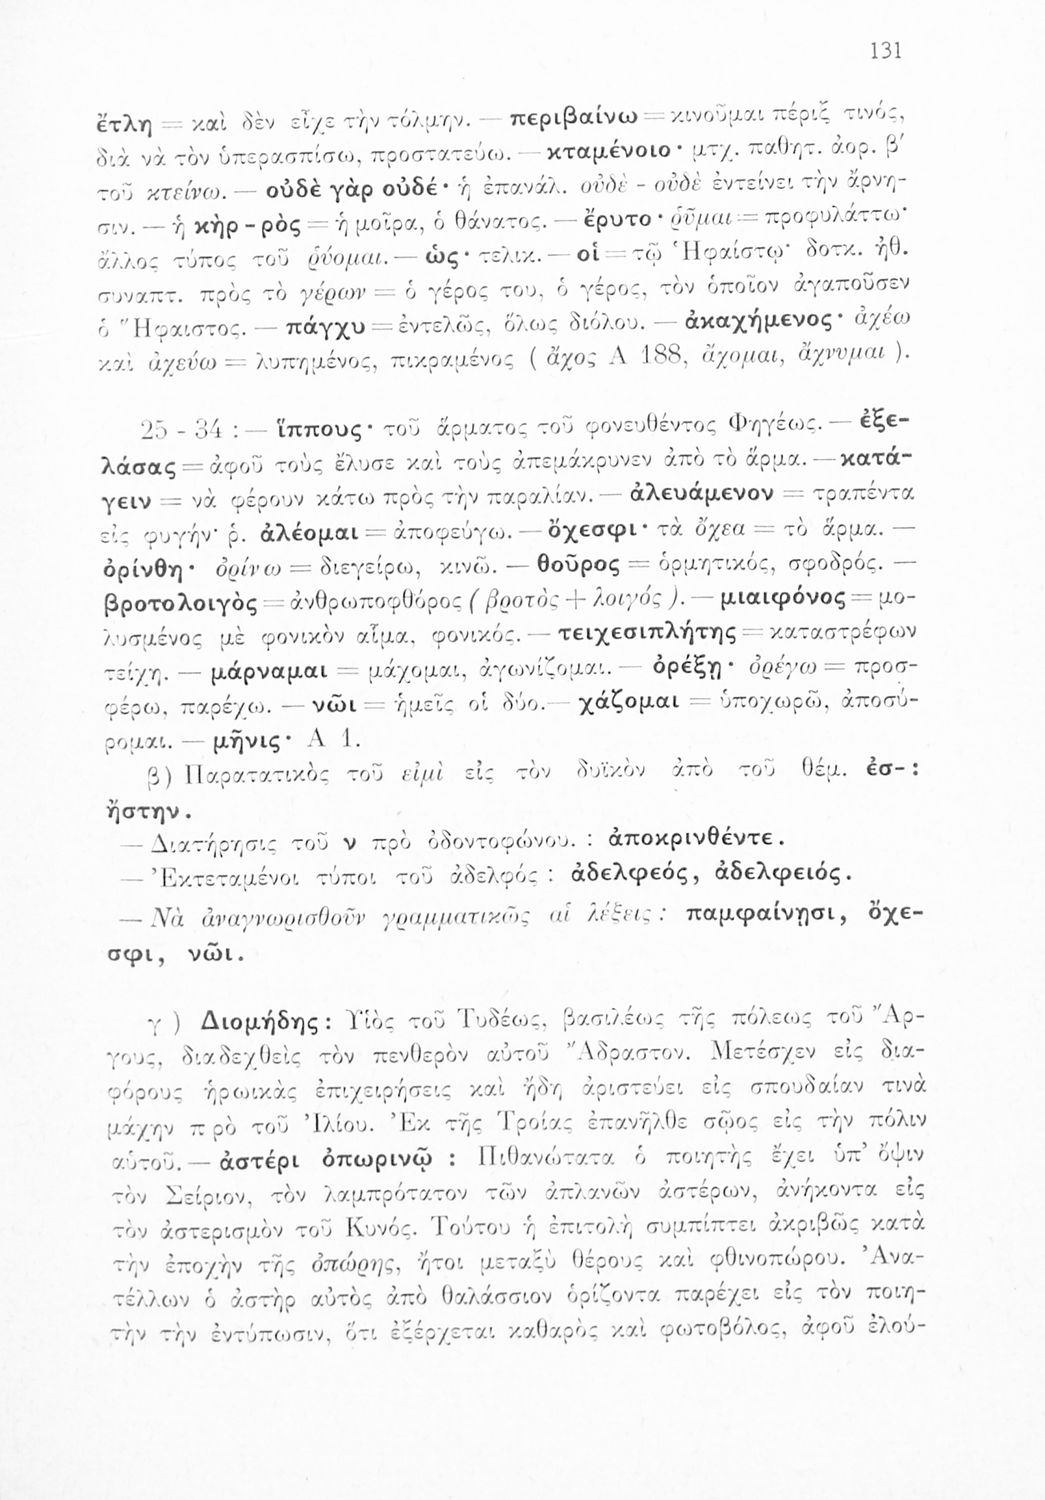 131
ἔτλη = καὶ δὲν εἶχε τὴν τόλμην. — περιβαίνω = κινοῦμαι πέριξ τινός,
διὰ νὰ τὸν ὑπερασπίσω, προστατεύω. — κταμένοιο · μτχ. παθητ. ἀορ. β΄
τοῦ κτείνω. — οὐδὲ γὰρ οὐδέ · ἡ ἐπανάλ. οὐδὲ - οὐδὲ ἐντείνει τὴν ἄρνη-
σιν. — ἡ κὴρ - ρὸς = ἡ μοῖρα, ὁ θάνατος. — ἔρυτο · ῥῦμαι = προφυλάττω·
ἄλλος τύπος τοῦ ῥύομαι. — ὡς · τελικ. — οἱ = τῷ Ἡφαίστῳ· δοτκ. ἠθ.
συναπτ. πρὸς τὸ γέρων = ὁ γέρος του, ὁ γέρος, τὸν ὁποῖον ἀγαποῦσεν
ὁ Ἥφαιστος. — πάγχυ = ἐντελῶς, ὅλως διόλου. — ἀκαχήμενος · ἀχέω
καὶ ἀχεύω = λυπημένος, πικραμένος ( ἄχος Α 188, ἄχομαι, ἄχνυμαι ).
25 - 34 : — ἵππους · τοῦ ἅρματος τοῦ φονευθέντος Φηγέως. — ἐξε-
λάσας = ἀφοῦ τοὺς ἔλυσε καὶ τοὺς ἀπεμάκρυνεν ἀπὸ τὸ ἅρμα. — κατά-
γειν = νὰ φέρουν κάτω πρὸς τὴν παραλίαν. — ἀλευάμενον = τραπέντα
εἰς φυγήν· ῥ. ἀλέομαι = ἀποφεύγω. — ὄχεσφι · τὰ ὄχεα = τὸ ἅρμα. —
ὀρίνθη · ὀρίνω = διεγείρω, κινῶ. — θοῦρος = ὁρμητικός, σφοδρός. —
βροτολοιγὸς = ἀνθρωποφθόρος ( βροτὸς + λοιγός ). — μιαιφόνος = μο-
λυσμένος μὲ φονικὸν αἷμα, φονικός. — τειχεσιπλήτης = καταστρέφων
τείχη. — μάρναμαι = μάχομαι, ἀγωνίζομαι. — ὀρέξῃ · ὀρέγω = προσ-
φέρω, παρέχω. — νῶι = ἡμεῖς οἱ δύο. — χάζομαι = ὑποχωρῶ, ἀποσύ-
ρομαι. — μῆνις · Α 1.
β) Παρατατικὸς τοῦ εἰμὶ εἰς τὸν δυϊκὸν ἀπὸ τοῦ θέμ. ἐσ- :
ἤστην.
— Διατήρησις τοῦ ν πρὸ ὀδοντοφώνου. : ἀποκρινθέντε.
— Ἐκτεταμένοι τύποι τοῦ ἀδελφός : ἀδελφεός, ἀδελφειός.
— Νὰ ἀναγνωρισθοῦν γραμματικῶς αἱ λέξεις : παμφαίνῃσι, ὄχε-
σφι, νῶι.
γ ) Διομήδης : Υἱὸς τοῦ Τυδέως, βασιλέως τῆς πόλεως τοῦ Ἄρ-
γους, διαδεχθεὶς τὸν πενθερὸν αὐτοῦ Ἄδραστον. Μετέσχεν εἰς δια-
φόρους ἡρωικὰς ἐπιχειρήσεις καὶ ἤδη ἀριστεύει εἰς σπουδαίαν τινὰ
μάχην πρὸ τοῦ Ἰλίου. Ἐκ τῆς Τροίας ἐπανῆλθε σῷος εἰς τὴν πόλιν
αὑτοῦ. — ἀστέρι ὀπωρινῷ : Πιθανώτατα ὁ ποιητὴς ἔχει ὑπ’ ὄψιν
τὸν Σείριον, τὸν λαμπρότατον τῶν ἀπλανῶν ἀστέρων, ἀνήκοντα εἰς
τὸν ἀστερισμὸν τοῦ Κυνός. Τούτου ἡ ἐπιτολὴ συμπίπτει ἀκριβῶς κατὰ
τὴν ἐποχὴν τῆς ὀπώρης, ἤτοι μεταξὺ θέρους καὶ φθινοπώρου. Ἀνα-
τέλλων ὁ ἀστὴρ αὐτὸς ἀπὸ θαλάσσιον ὁρίζοντα παρέχει εἰς τὸν ποιη-
τὴν τὴν ἐντύπωσιν, ὅτι ἐξέρχεται καθαρὸς καὶ φωτοβόλος, ἀφοῦ ἐλού-